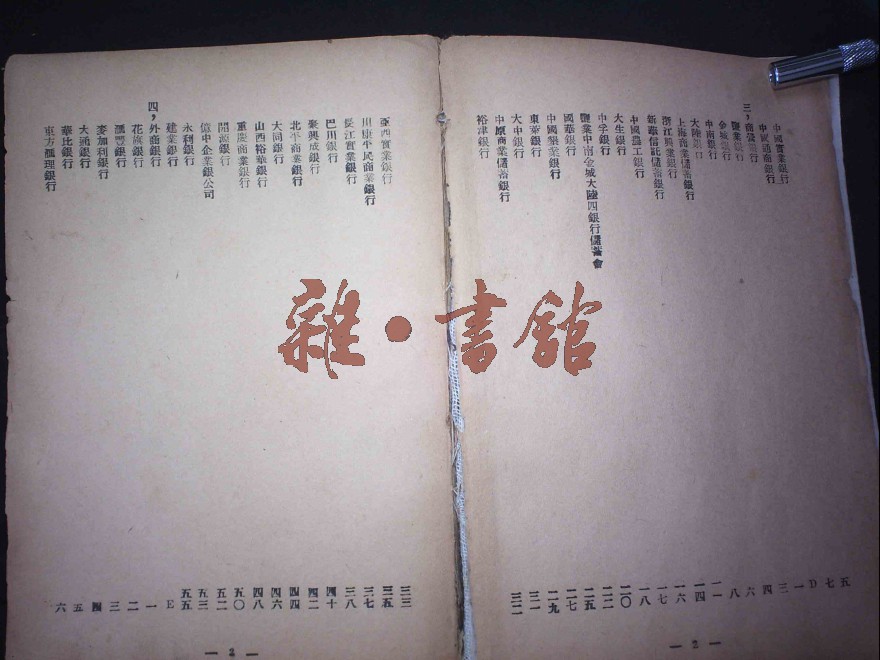 中國實業銀行 五
中國通商銀行 七
三，商營銀行 D
鹽業銀行 一
金城銀行 三
中南銀行 四
大陸銀行 六
上海商業儲蓄銀行 八
浙江興業銀行 一一
新華信託儲蓄銀行 一四
中國農工銀行 一六
大生銀行 一七
中孚銀行 一八
鹽業中南金城大陸四銀行儲蓄會 二〇
國華銀行 二二
中國墾業銀行 二五
東萊銀行 二七
大中銀行 二九
中原商業儲蓄銀行 三一
裕津銀行 三二
— 2 —
亞西實業銀行 三三
川康平民商業銀行 三五
長江實業銀行 三七
巴川銀行 三八
聚興成銀行 四十
北平商業銀行 四二
大同銀行 四四
山西裕華銀行 四六
重慶商業銀行 四八
開源銀行 五〇
億中企業銀公司 五二
永利銀行 五三
建業銀行 五五
四，外商銀行 E
花旗銀行 一
滙豐銀行 二
麥加利銀行 三
大通銀行 四
華比銀行 五
東方滙理銀行 六
— 3 —
雜·書館